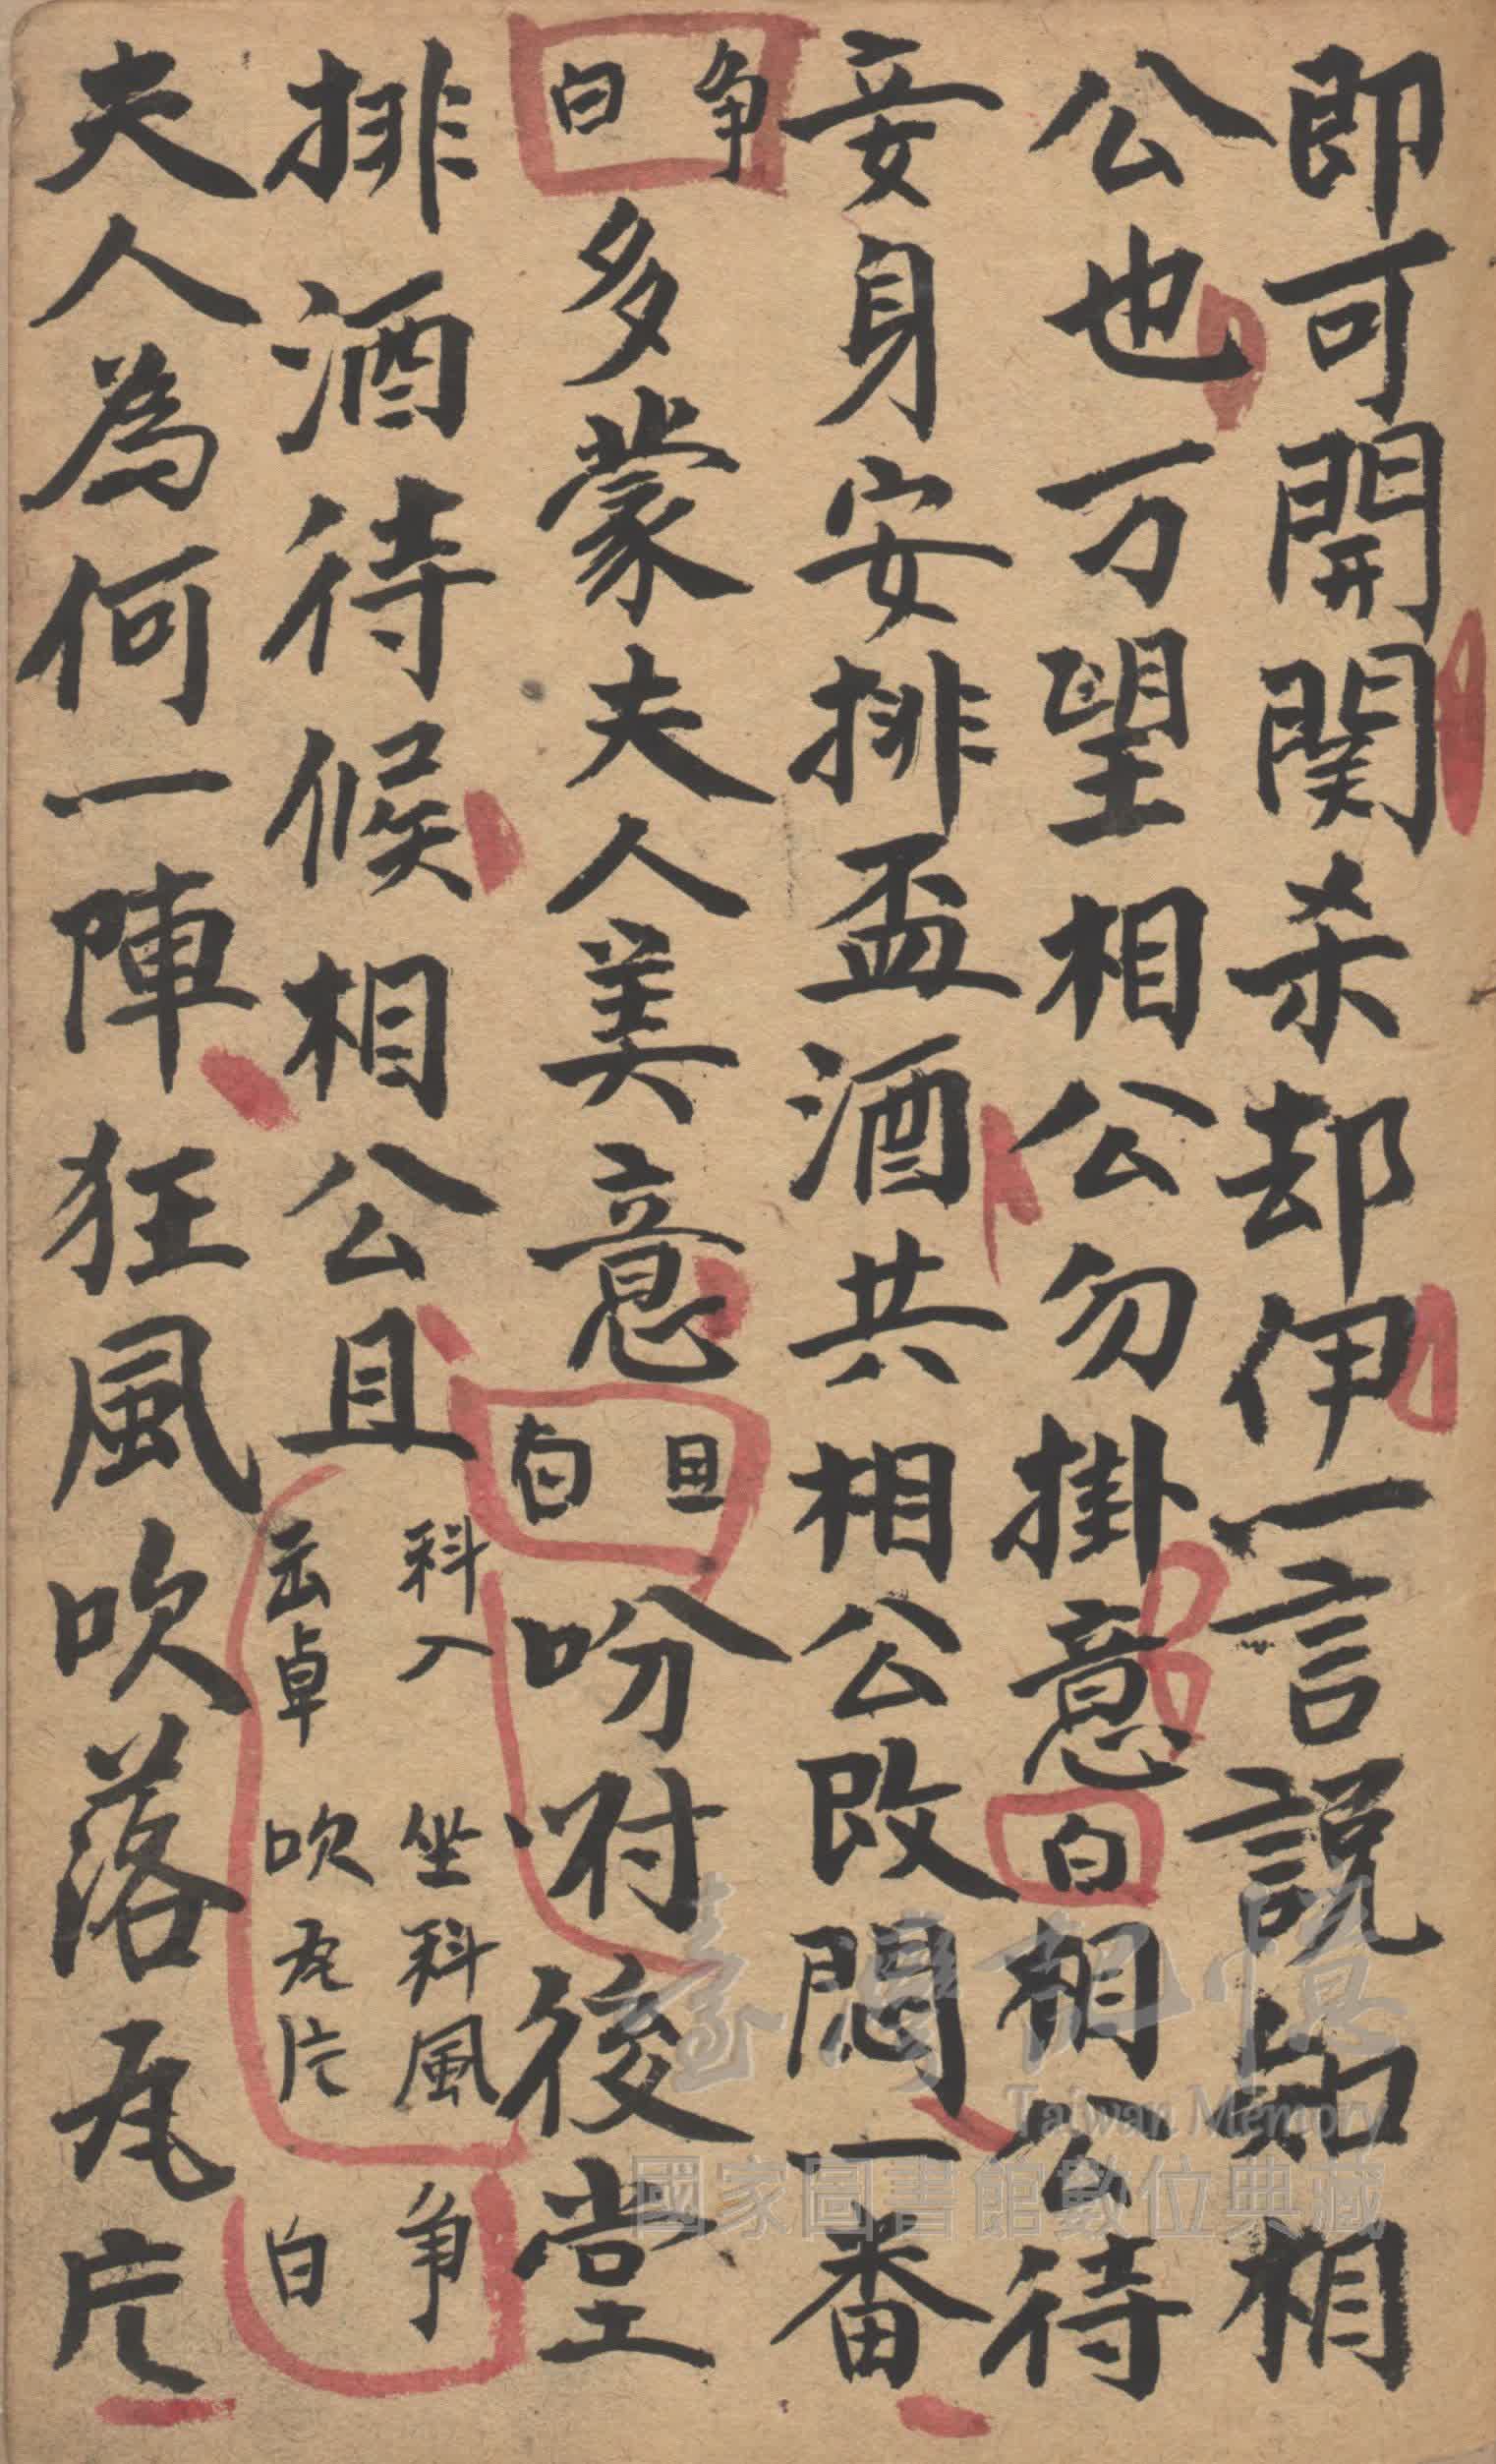 即可開関杀却伊一言説知相
公也万望相公勿掛意白相公待
妾身安排盃酒共相公改悶一番
争白多蒙夫人美意旦白吩咐後堂
排酒待候相公且科入坐科風云卓吹瓦片争白
夫人為何一陣狂風吹落瓦片
臺灣記憶
Taiwan Memory
國家圖書館數位典藏